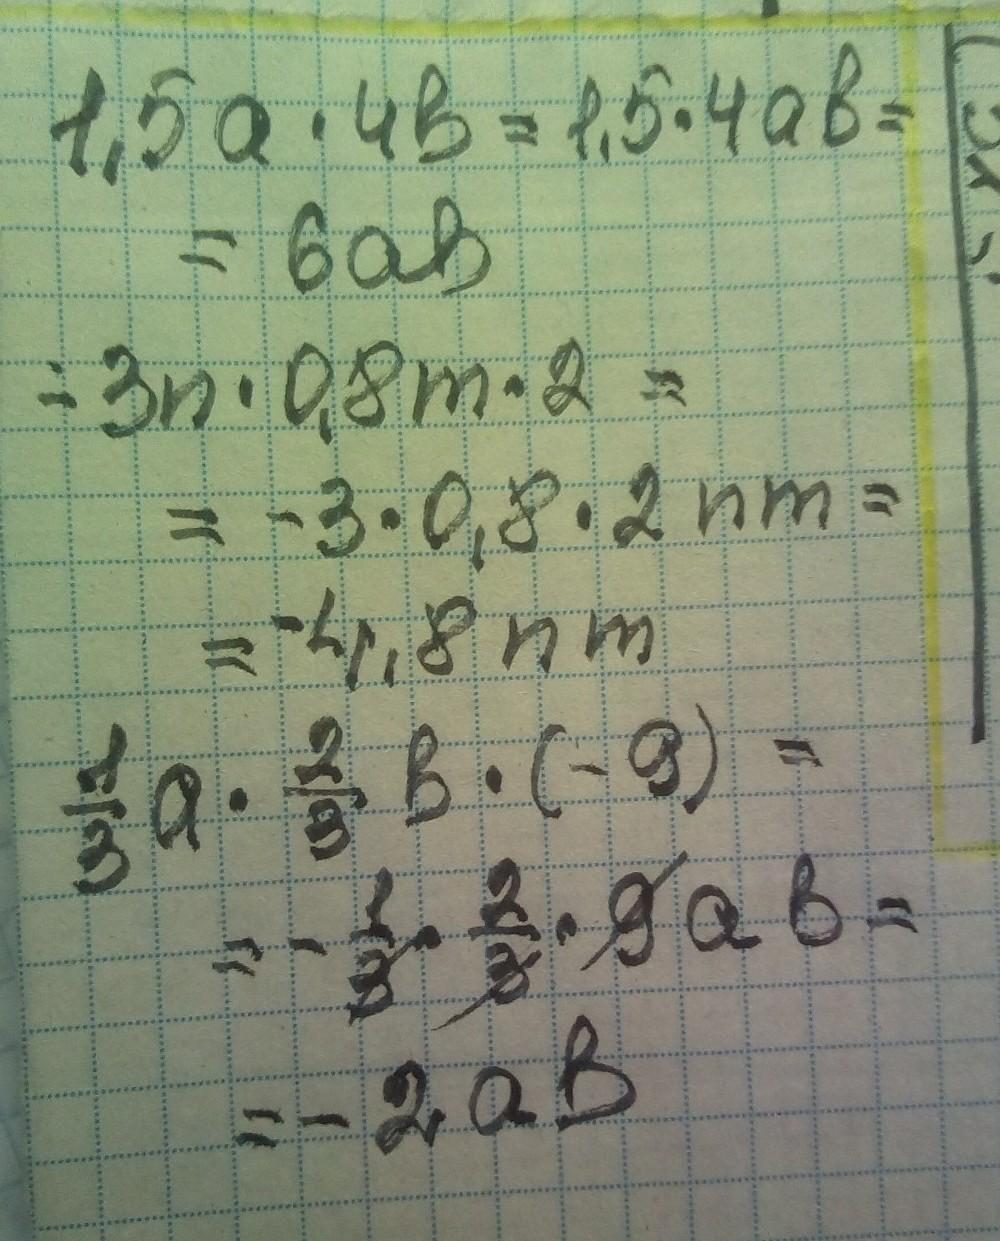 1,5a·4b=1,5·4ab=
= 6ab
-3n·0,8m·2 =
= -3·0,8·2nm=
= -4,8nm
1/3 a · 2/3 b · (-9) =
= - 1/3 · 2/3 · 9ab=
= - 2ab